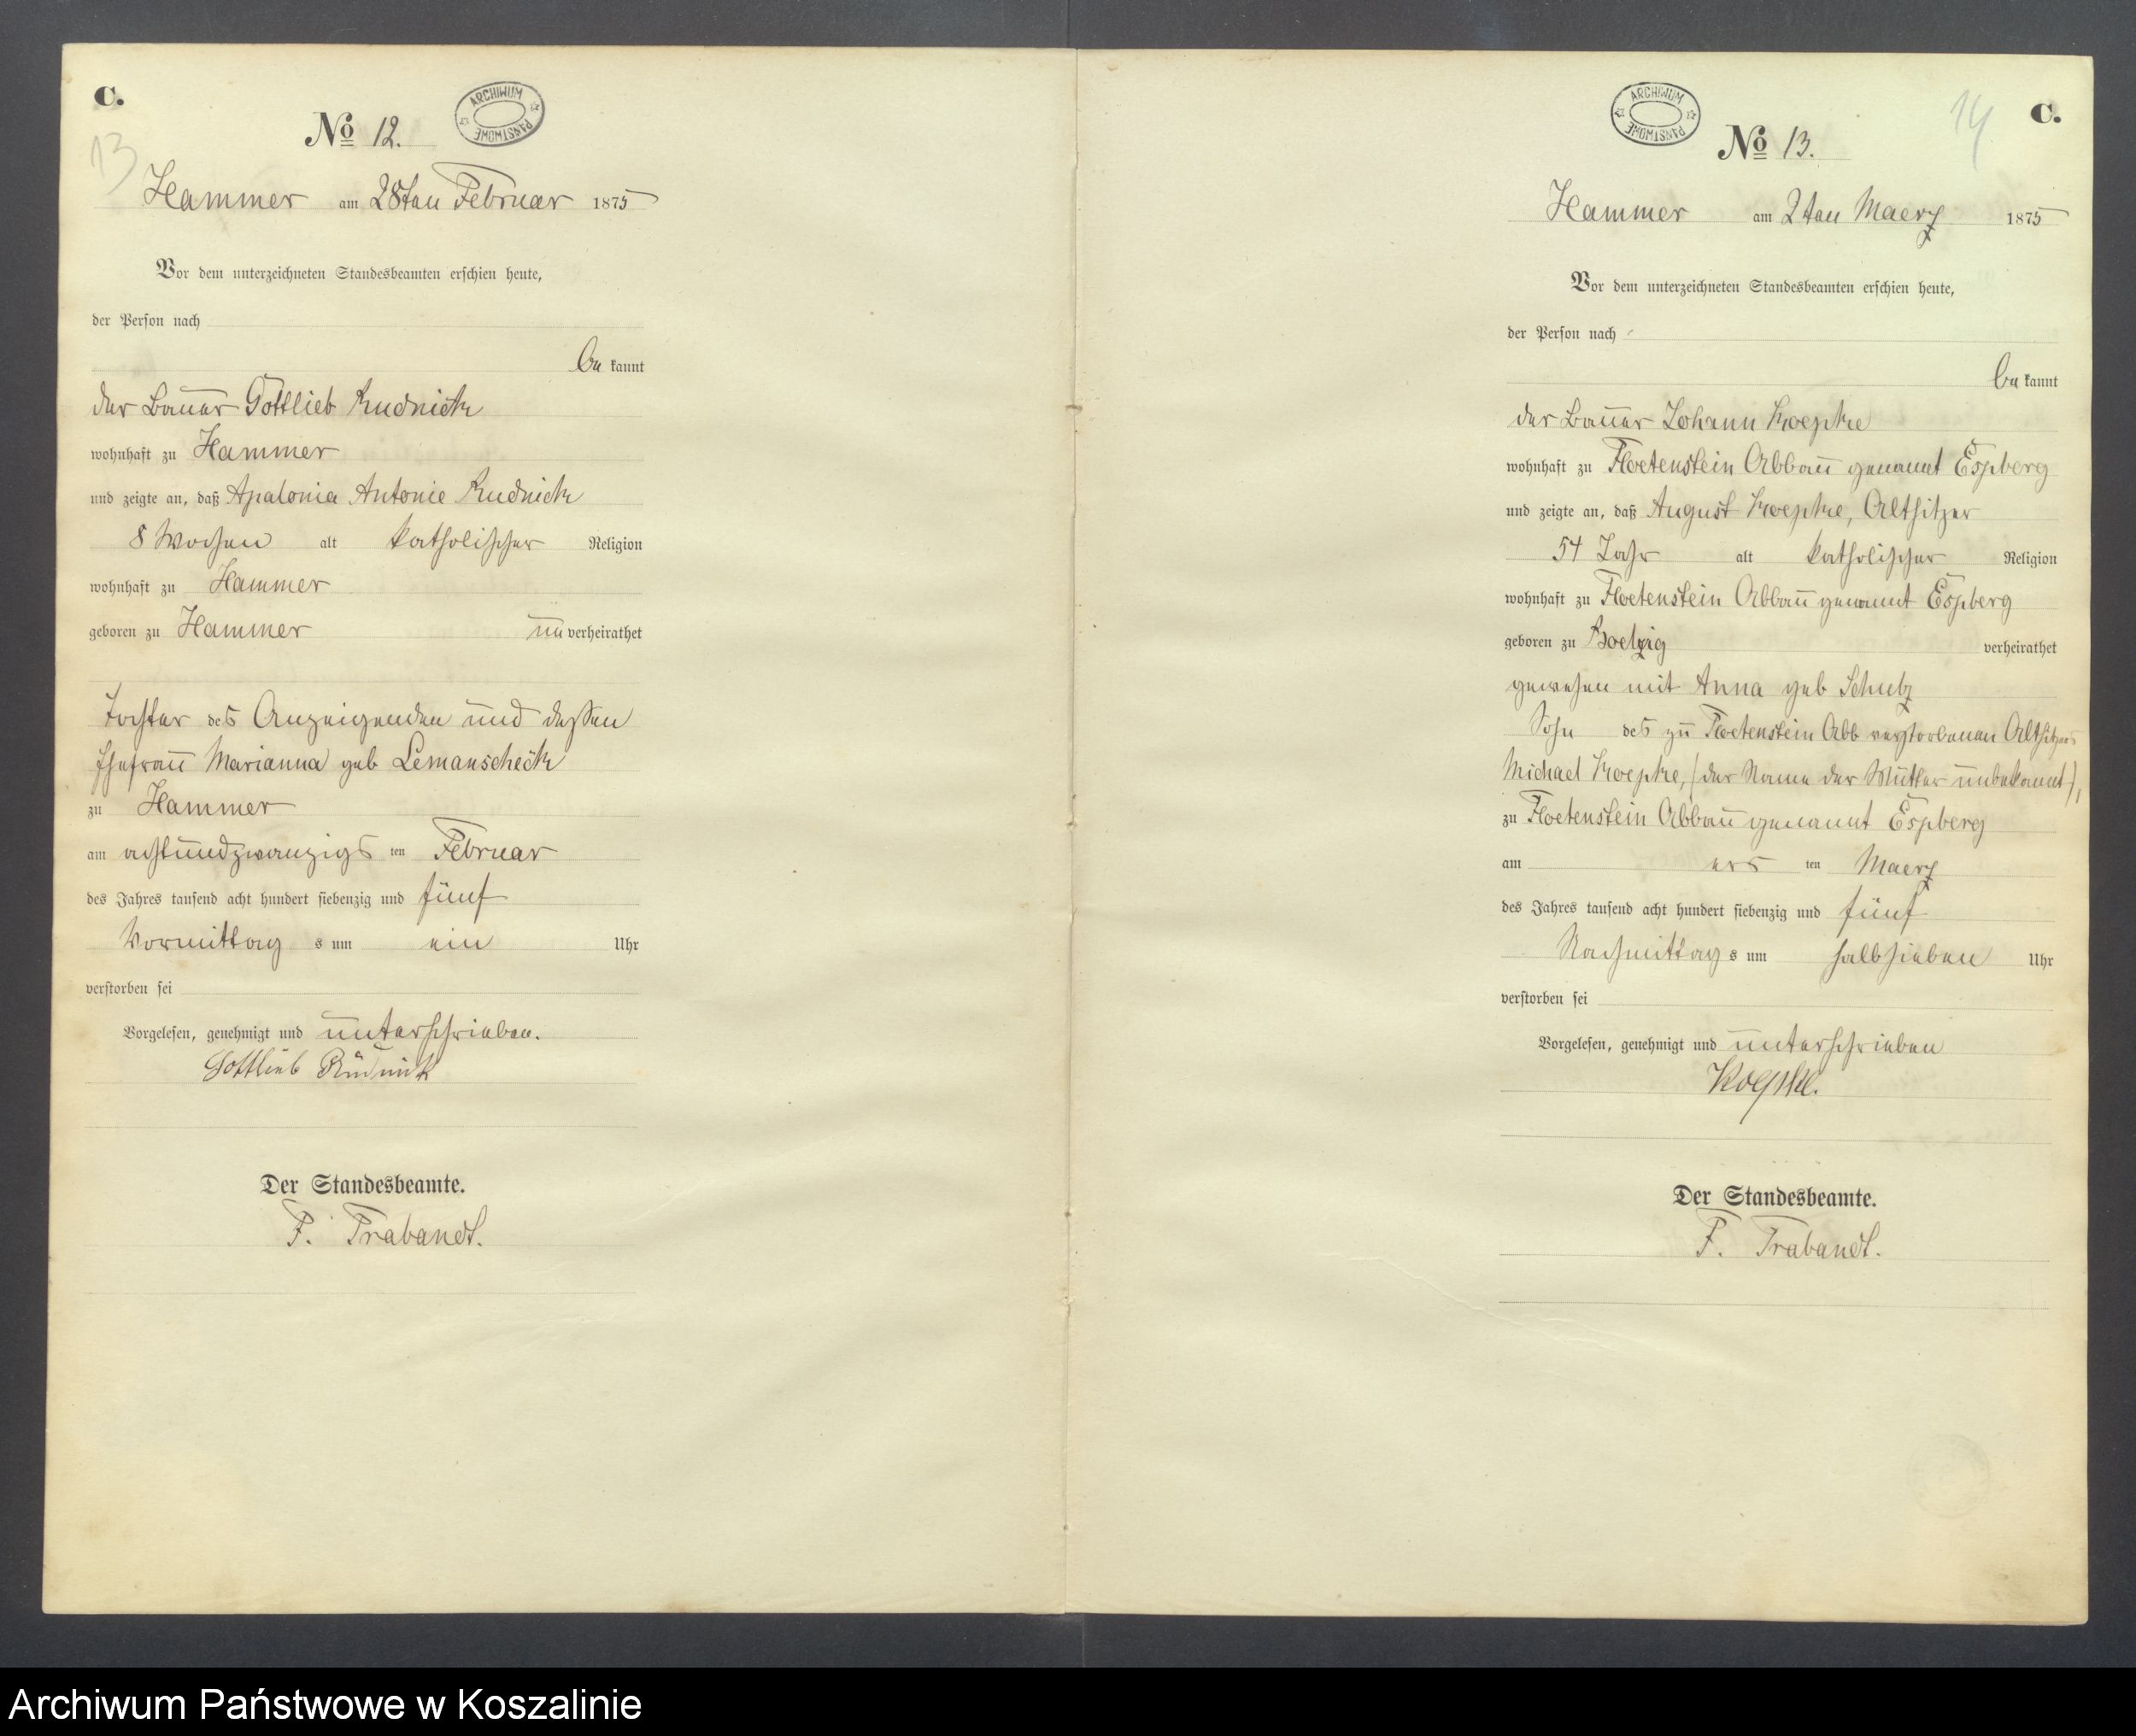 C.
13
No 12.
ARCHIWUM PAŃSTWOWE
Hammer am 28ten Februar 1875
Vor dem unterzeichneten Standesbeamten erschien heute,
der Person nach
be kannt
der Bauer Gottlieb Rudnick
wohnhaft zu Hammer
und zeigte an, daß Apalonia Antonie Rudnick
8 Wochen alt katholischer Religion
wohnhaft zu Hammer
geboren zu Hammer un verheirathet
Tochter des Anzeigenden und dessen
Ehefrau Marianna geb Lemanscheck
zu Hammer
am achtundzwanzigs ten Februar
des Jahres tausend acht hundert siebenzig und fünf
Vormittag s um ein Uhr
verstorben sei
Vorgelesen, genehmigt und unterschrieben.
Gottlieb Rudnick
Der Standesbeamte.
F. Trabandt.
C.
14
No 13.
ARCHIWUM PAŃSTWOWE
Hammer am 2ten Maerz 1875
Vor dem unterzeichneten Standesbeamten erschien heute,
der Person nach
be kannt
der Bauer Johann Koepke
wohnhaft zu Floetenstein Abbau genannt Espberg
und zeigte an, daß August Koepke, Altsitzer
54 Jahr alt katholischer Religion
wohnhaft zu Floetenstein Abbau genannt Espberg
geboren zu Boelzig verheirathet
gewesen mit Anna geb Schulz
Sohn des zu Floetenstein Abb verstorbenen Altsitzers
Michael Koepke, (der Name der Mutter unbekannt),
zu Floetenstein Abbau genannt Espberg
am ers ten Maerz
des Jahres tausend acht hundert siebenzig und fünf
Nachmittag s um halb sieben Uhr
verstorben sei
Vorgelesen, genehmigt und unterschrieben
Koepke.
Der Standesbeamte.
F. Trabandt.
Archiwum Państwowe w Koszalinie